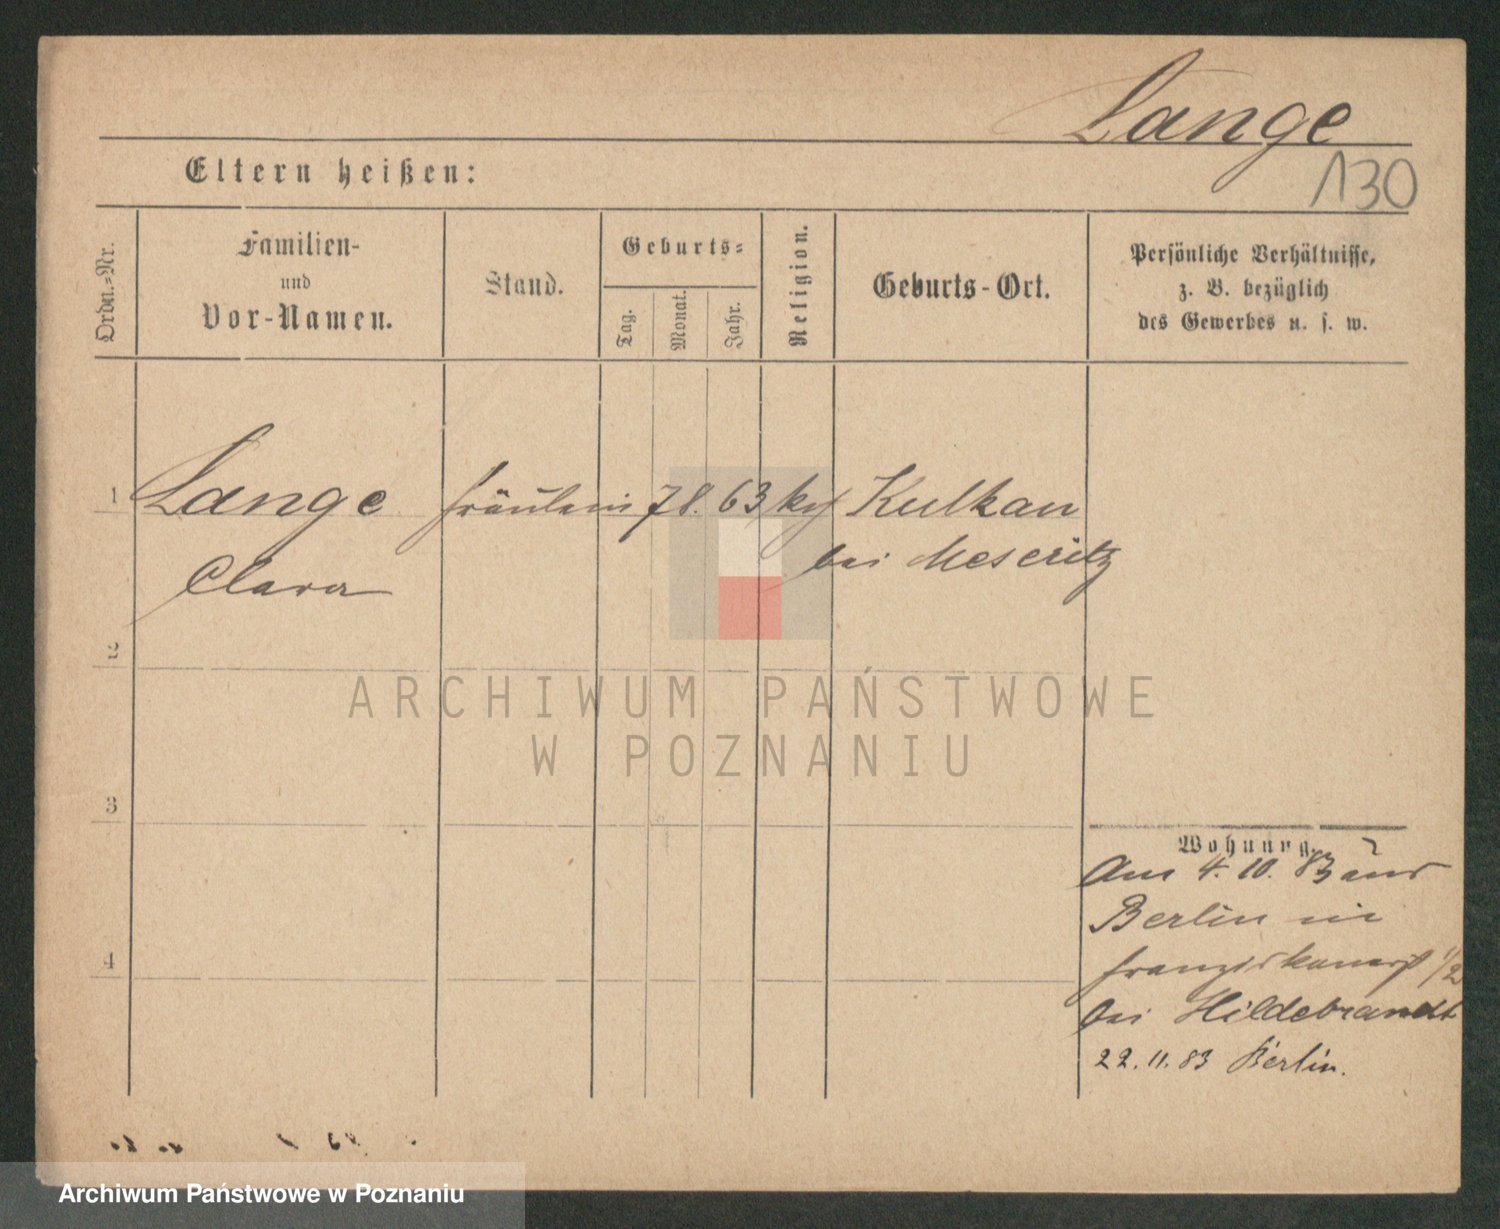 Lange
130
Eltern heißen:
Ordn.=Nr.
Familien-
und
Vor-Namen.
Stand.
Geburts=
Tag.
Monat.
Jahr.
Religion.
Geburts-Ort.
Persönliche Verhältnisse,
z. B. bezüglich
des Gewerbes u. s. w.
1 Lange Fräulein 7 8. 63 Kulkau
Clara bei Meseritz
2
ARCHIWUM PAŃSTWOWE
W POZNANIU
3
Wohnung.
Am 4. 10. 83 aus
Berlin in
bei Hildebrandt
4
22. 11. 83 Berlin.
Archiwum Państwowe w Poznaniu